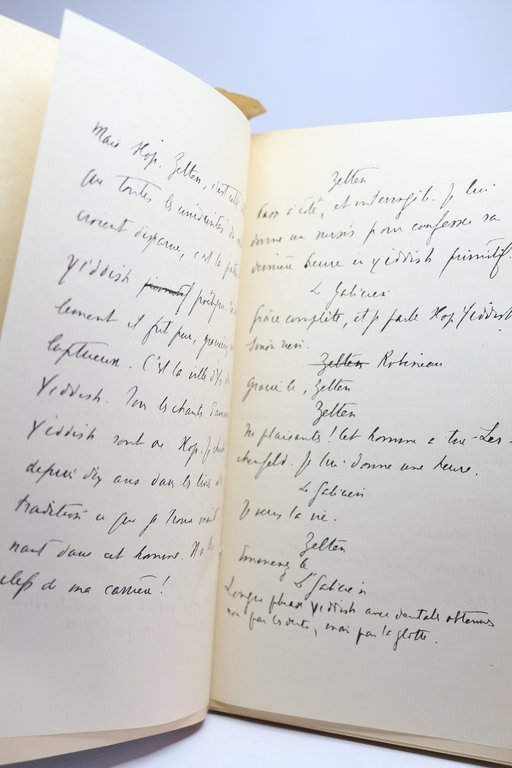 Mais Hop. Zelten, c'est cette
que toutes les universités du
croient disparue, c'est la
Yiddish primitif
lement il fut pur,
luptueux. C'est la ville du
Yiddish. Tous les chants d'amour
Yiddish sont de Hop. Je cherche
depuis dix ans dans les livres
tradition ce que je trouve
nant dans cet homme.
clefs de ma carrière !
Zelten
Pars à côté, et interroge-le. Je lui
donne un sursis pour confesser sa
dernière heure en yiddish primitif.
Le Galicien
Grâce complète, et je parle Hop Yiddish.
Sinon rien.
Zelten Robineau
Gracie-le, Zelten
Zelten
Tu plaisantes ! Cet homme a tué Ler-
chenfeld. Je lui donne une heure.
Le Galicien
Je veux la vie.
Zelten
Emmenez-le
Le Galicien
Longue phrase Yiddish avec dentales obtenues
non par les dents, mais par la glotte.